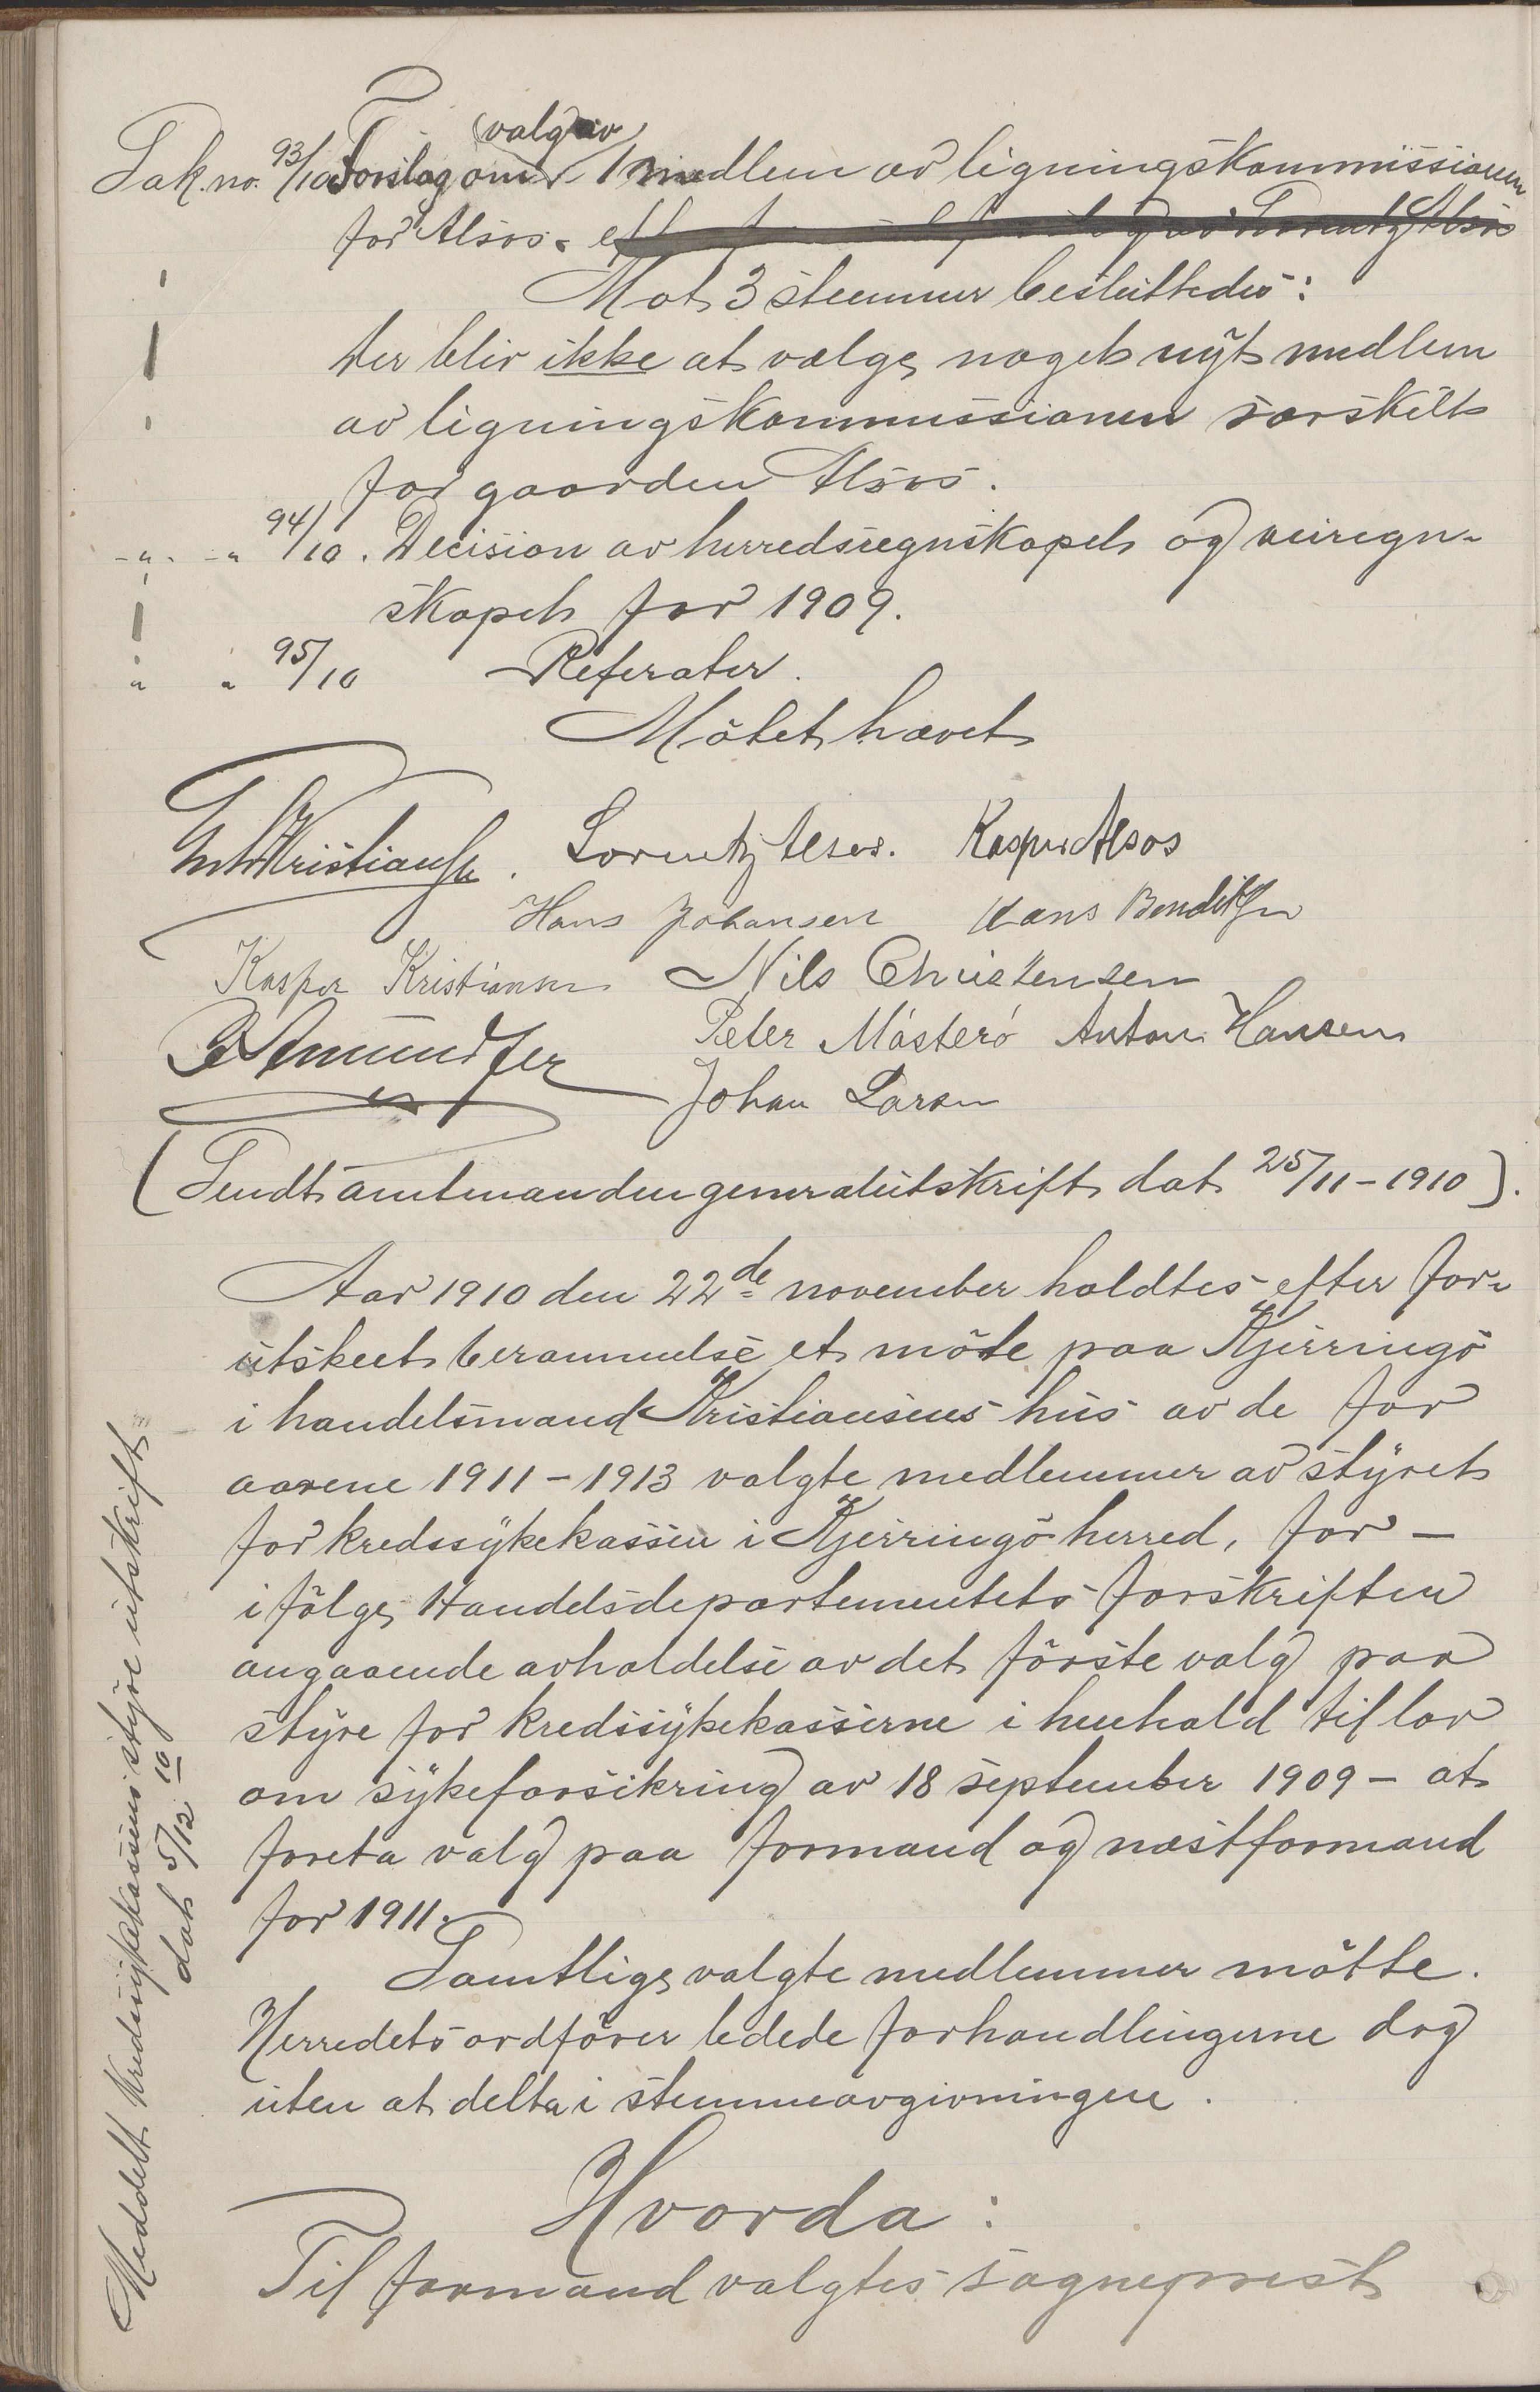 Sak. no. 93/10 Forslag om valg av 1 medlem av ligningskommissionen
for Alsos.
Mot 3 stemmer besluttedes:
Der blir ikke at vælge noget nyt medlem
av ligningskommissionen særskilt
for gaarden Alsos.
-"- -" 94/10. Decision av herredsregnskapet og veiregn-
skapet for 1909.
" " 95/10 Referater.
Mötet hævet
Kristiansen. Lorentz Alsos. Kasper Alsos
Hans Johansen Hans Benditsen
Kasper Kristiansen Nils Christensen
Amundsen Peter Mösterö Anton Hansen
Johan Larsen
(Sendt amtmanden generalutskrift dat 25/11-1910).
Aar 1910 den 22de november holdtes efter for-
utskeet berammelse et möte paa Kjerringö
i handelsmand Kristiansens hus av de for
aarene 1911-1913 valgte medlemmer av styret
for kredssykekassen i Kjerringö herred, for -
i fölge Handelsdepartementets forskrifter
angaaende avholdelse av det förste valg paa
styre for kredssykekasserne i henhold til lov
om sykeforsikring av 18 september 1909 - at
foreta valg paa formand og næstformand
for 1911.
Samtlige valgte medlemmer mötte.
Herredets ordförer ledede forhandlingerne dog
uten at delta i stemmeavgivningen.
Hvorda:
Til formand valgtes sogneprest
Meddelt Kredssykekassens styre utskrift
dat 5/12 10